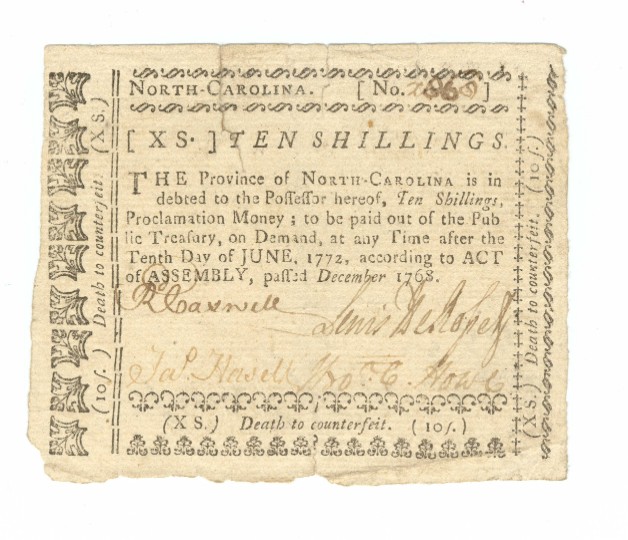 NORTH-CAROLINA. [ No. ]
[ XS. ] TEN SHILLINGS.
THE Province of NORTH-CAROLINA is in
debted to the Poſſeſſor hereof, Ten Shillings,
Proclamation Money ; to be paid out of the Pub
lic Treaſury, on Demand, at any Time after the
Tenth Day of JUNE, 1772, according to ACT
of ASSEMBLY, paſſed December 1768.
Rd Caswell Lewis DeRosset
Jas. Hasell Robt. Howe
(XS.) Death to counterfeit. (10ſ.)
(10ſ.) Death to counterfeit. (XS.)
(XS.) Death to counterfeit. (10ſ.)